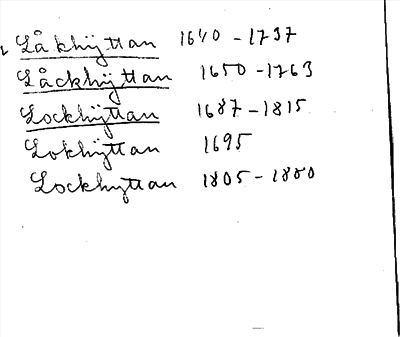 Låkhÿttan 1640-1737
Låckhÿttan 1650-1763
Lockhÿttan 1687-1815
Lokhÿttan 1695
Lockhyttan 1805-1880